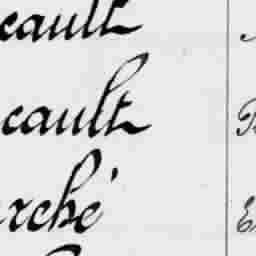 cault
cault
rché